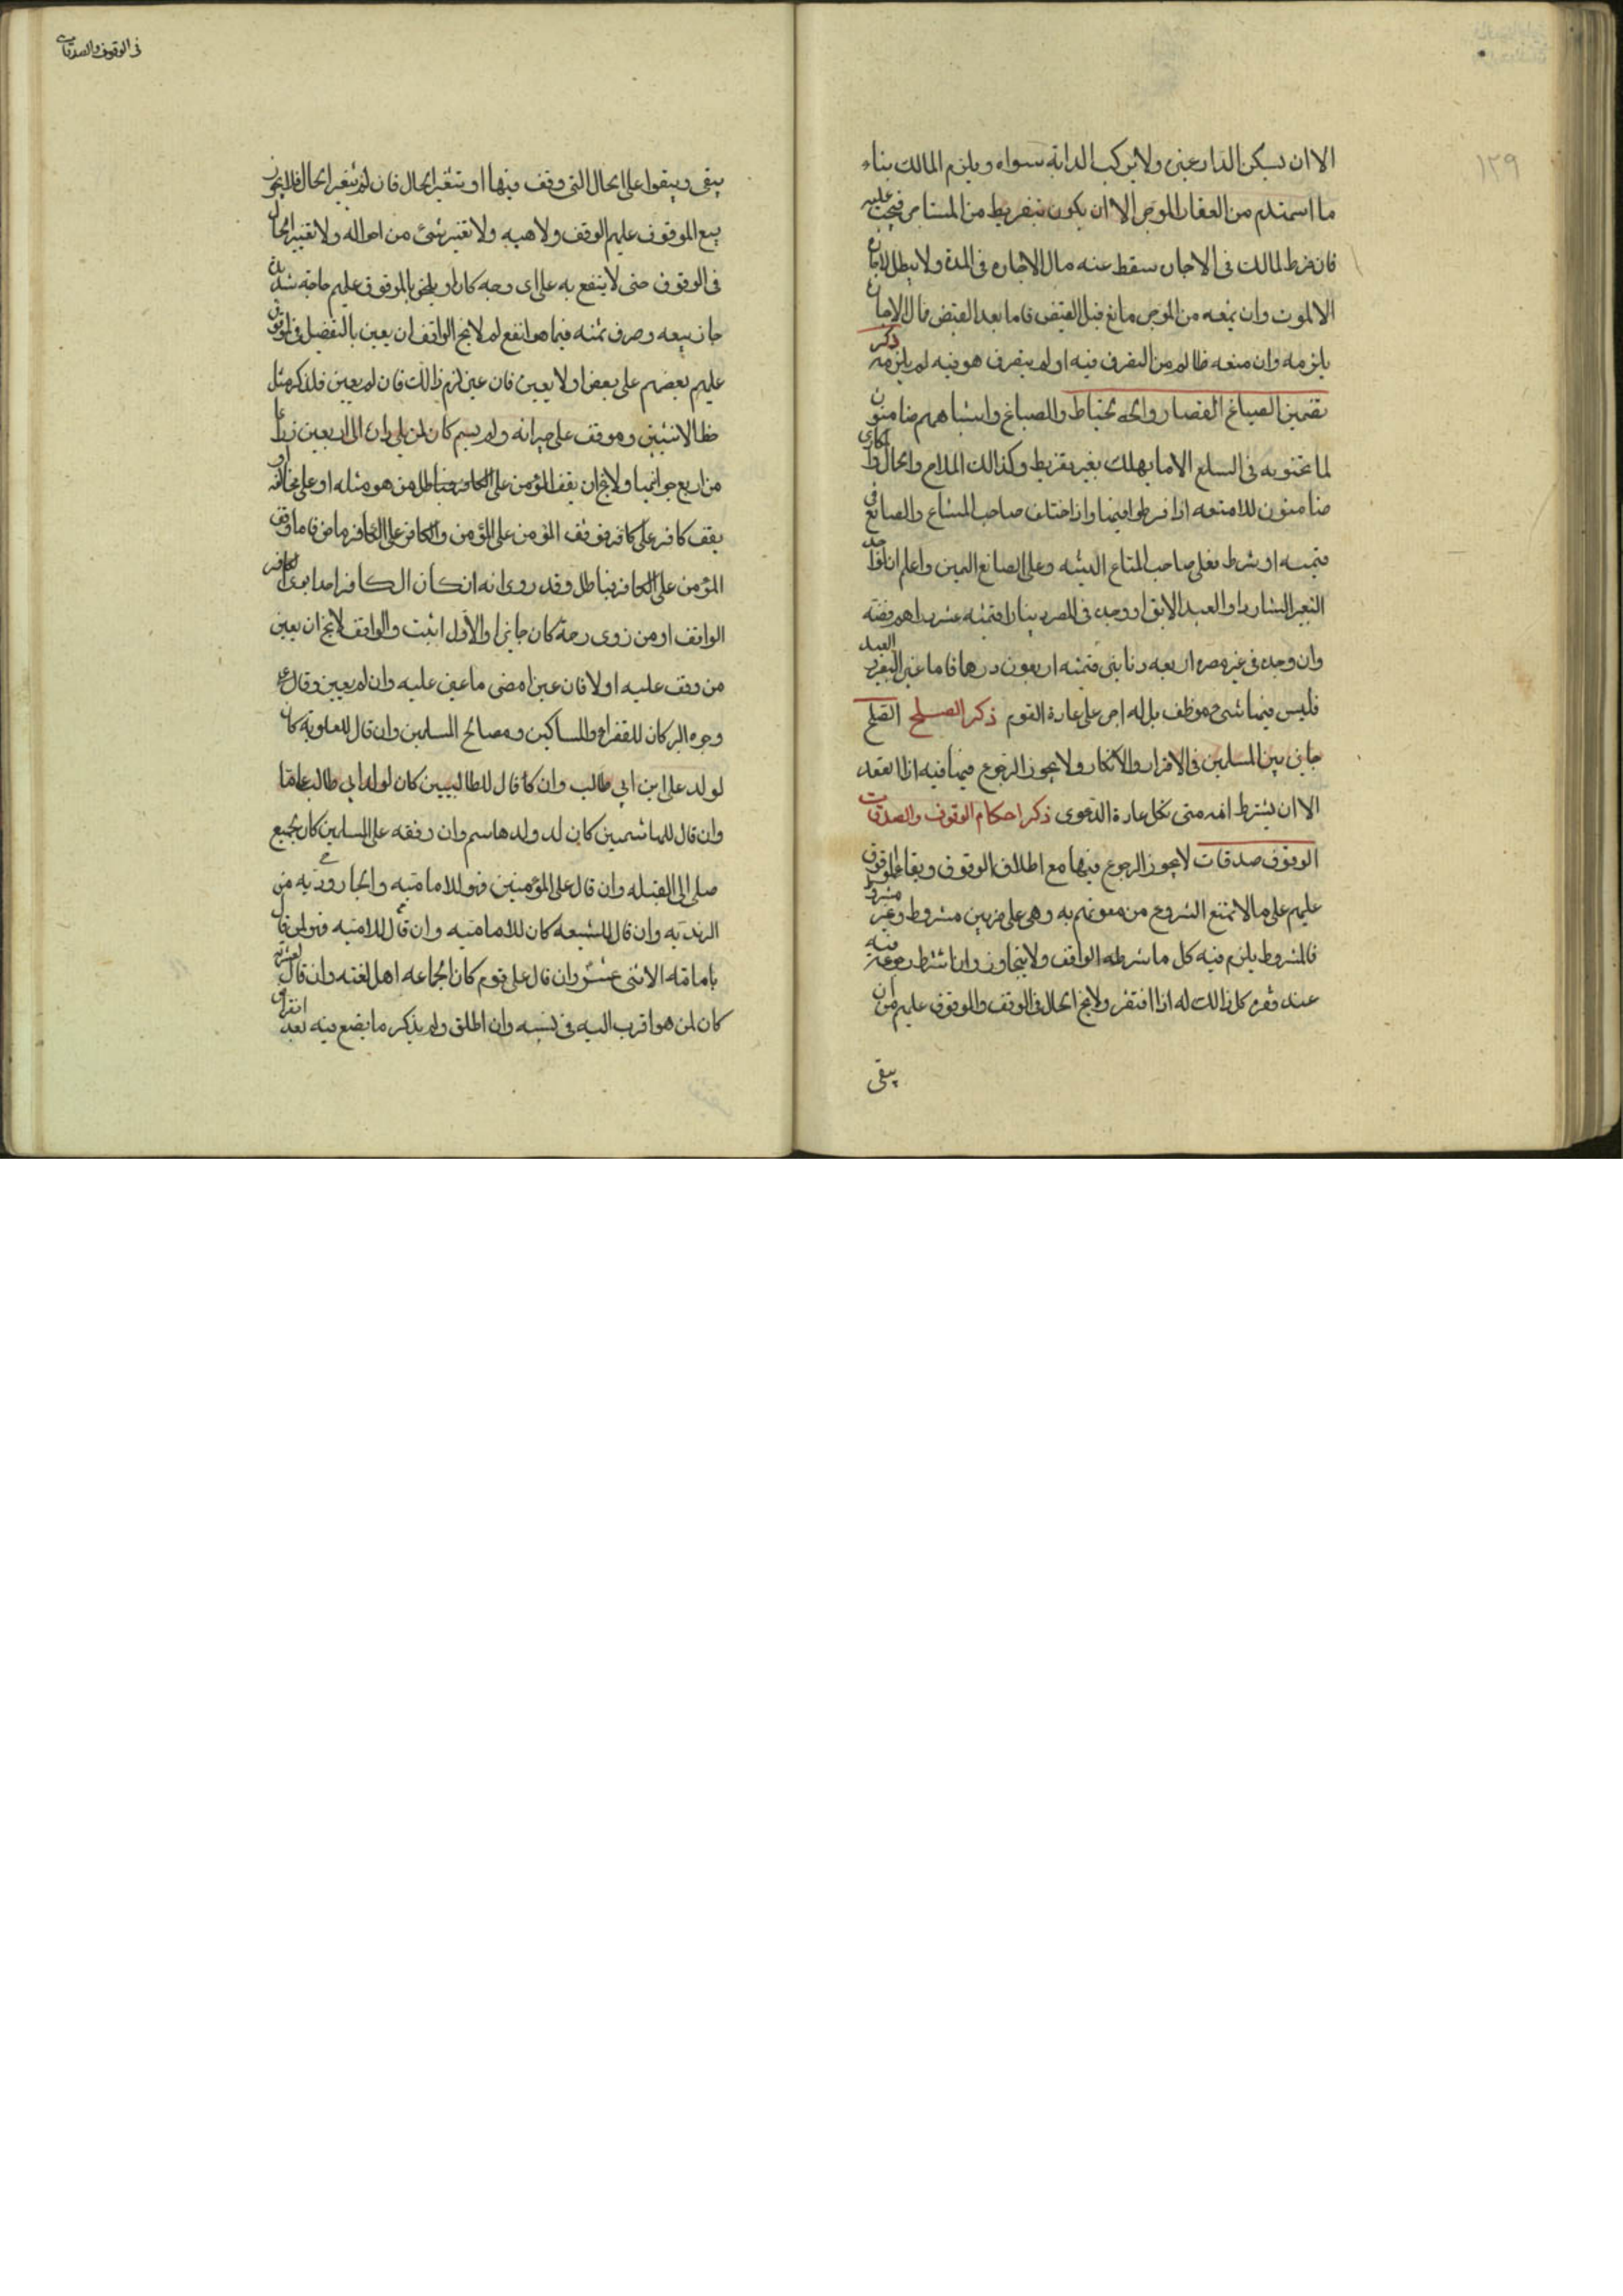 ١٢٩
الا ان يسكن الدار عينى ولا يركب الدابه سواه ويلزم المالك بناء
ما استهدم من العقار الموجر الا ان يكون بتفريط من المستاجر فيجب عليه
فان فرط المالك فى الاجارة سقط عنه مال الاجاره فى المدة ولا يبطل الاجارة
الا الموت وان يمنعه من الموجر مانع قبل القبض فاما بعد القبض فمال الاجارة
يلزمه وان منعه ظالم من التصرف فيه او لم يتصرف هو فيه لم يلزمه ذكر
تضمين الصياغ القصار والخياط والصباغ واشباههم ضامنون
لما يجنونه فى السلع الا ما يهلك بغير تفريط وكذالك الملاح والحمال والمكارى
ضامنون للامتعه اذا فرطوا فيها واذا اختلف صاحب المتاع والصانع فى
قيمته او شرط فعلى صاحب المتاع البينه وعلى الصانع اليمين واعلم ان لواجد
البعير الشارد او العبد الابق اذا وجده فى المصر دينارا قيمته عشر دراهم فضه
وان وجده فى غير مصره اربعه دنانير قيمته اربعون درهما فاما غير البعير والعبد
فليس فيها شىء موظف بل له اجر على عادة القوم ذكر الصلح الصلح
جايز بين المسلمين فى الاقرار والانكار ولا يجوز الرجوع فيها فيه اذا انعقد
الا ان يشترط انه متى نكل عادة الدعوى ذكر احكام الوقوف والصدقات
الوقوف صدقات لا يجوز الرجوع فيها مع اطلاق الوقوف وبقاء الموقوف
عليهم على ما لا يمنع الشروع من معونتهم به وهى على ضربين مشروط وغير مشروط
فالمشروط يلزم فيه كل ما شرطه الواقف ولا يتجاوز واذا اشترط رجوعه فيه
عند فقره كان ذالك له اذا افتقر ولا يخ الحال فى الوقف والموقوف عليهم من ان
يبقى
فى الوقوف والصدقات
يبقى ويبقوا على الحال التى وقف فيها او يتغير الحال فان لم يتغير الحال فلا يجوز
بيع الموقوف عليهم الوقف ولا هبه ولا تغيير شئ من احواله ولا تغيير الحال
فى الوقوف حتى لا ينتفع به على اى وجه كان او يلحق بالموقوف عليهم حاجة شديدة
جاز بيعه وصرف ثمنه فيما هو انفع لهم لا يخ الواقف ان يعين بالتفضيل فى الموقوف
عليهم بعضهم على بعض او لا يعين فان عين لزم ذالك فان لم يعين فللذكر مثل
حظ الانثيين وموقف على جيرانه ولم يسم كان لمن يلى داره الى اربعين ذراعا
من اربع جوانبها ولا يخ ان يقف المؤمن على الكافر فباطل من هو مثله او على مخالفه او
يقف كافر على كافر فوقف المؤمن على المؤمن والكافر على الكافر ماض فاما وقف
المؤمن على الكافر فباطل وقد روى انه ان كان الكافر احد ابوى الكافر
الواقف او من ذوى رحمه كان جائزا والاول اثبت والواقف لا يخ ان يعين
من وقف عليه او لا فان عين امضى ما عين عليه وان لم يعين وقال على
وجوه البر كان للفقراء والمساكين ومصالح المسلمين وان قال للعلويه كان
لولد على ابن ابي طالب وان كا قال للطالبيين كان لولد ابي طالب عامة
وان قال للهاشميين كان لد ولد هاسم وان وقفه على المسلمين كان لجميع
صلى الى القبله وان قال على المؤمنين فهو للاماميه والجاروديه من
الزيديه وان قال للشيعه كان للاماميه وان قال للاماميه فهو لمن قال
بامامة الاثنى عشر وان قال على قوم كان لجماعه اهل لغته وان قال لعشيرته
كان لمن هو اقرب اليه فى نسبه وان اطلق ولم يذكر ما يضع فيه بعد انقراض